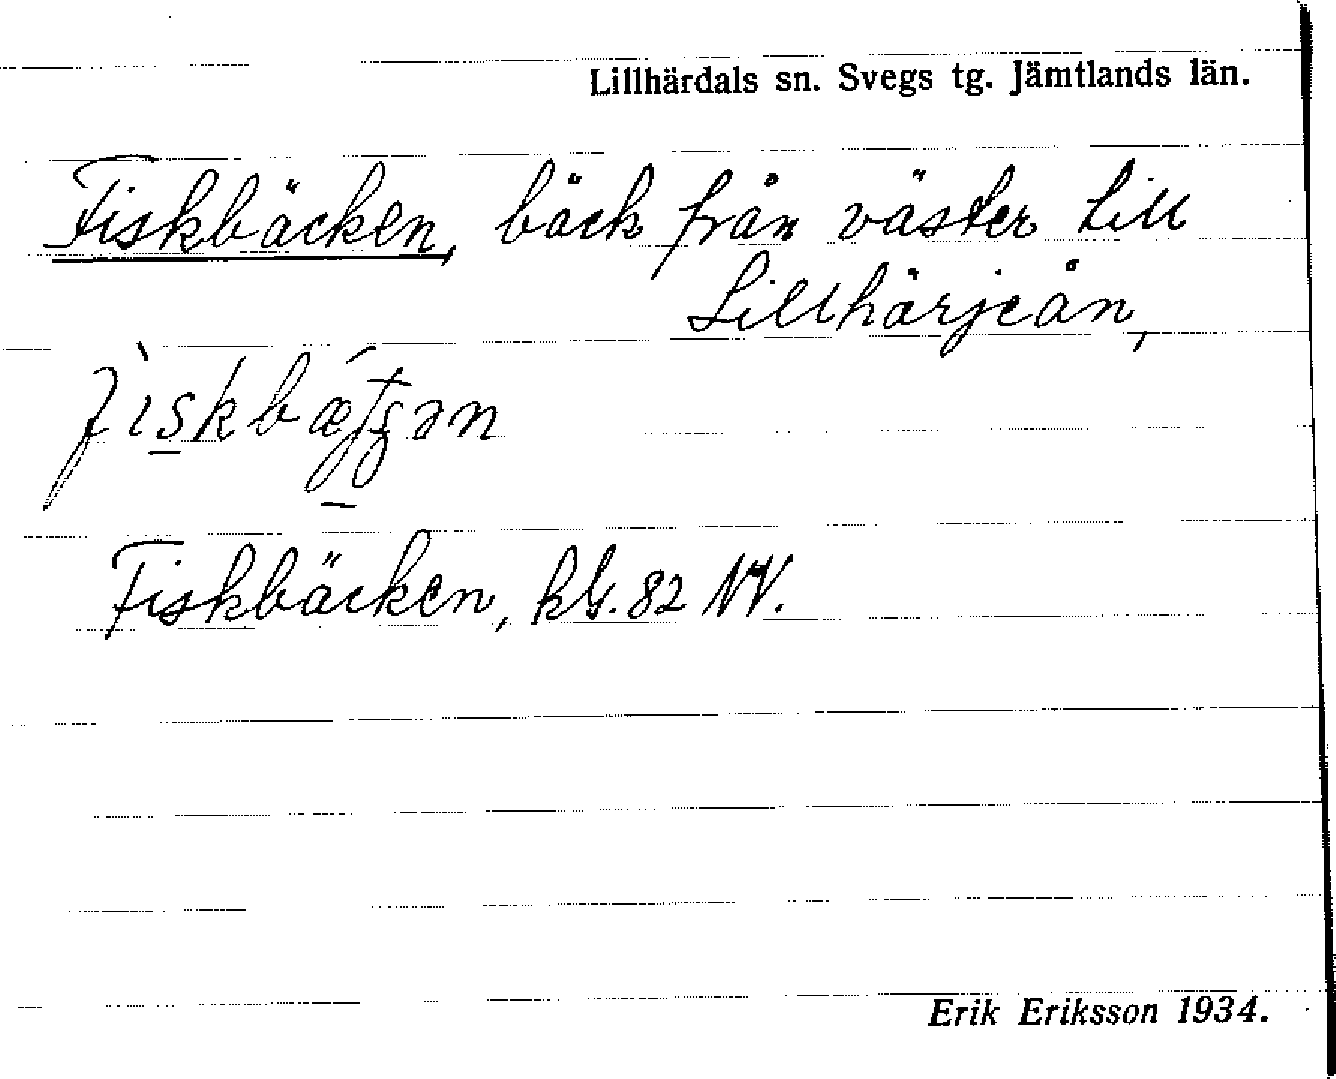 Lillhärdals sn. Svegs tg. Jämtlands län.
Fiskbäcken, bäck från väster till
Lillhärjeån,
Fiskbäcken, kG. 82 NV.
Erik Eriksson 1934.